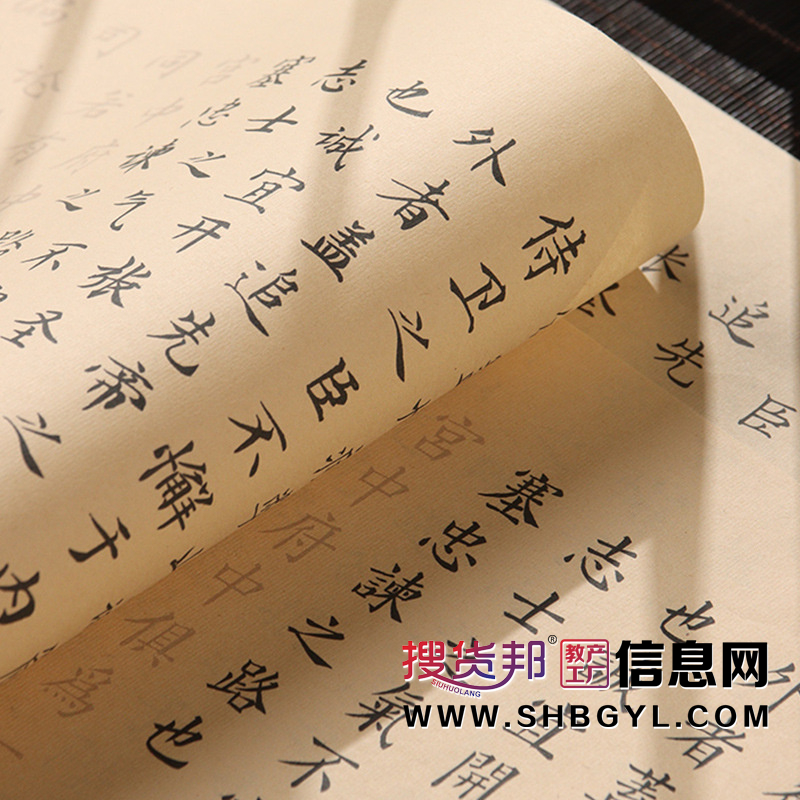 侍卫之臣不懈于内
外者盖追先帝之
也诚宜开张圣
志士之气不
塞忠谏之路
臣
追先
宫中府中俱為一
塞忠諫之路也
志士
氣不
也
開
外者
搜货邦®
SIUHUOLANG
教产工厂
信息网
WWW.SHBGYL.COM